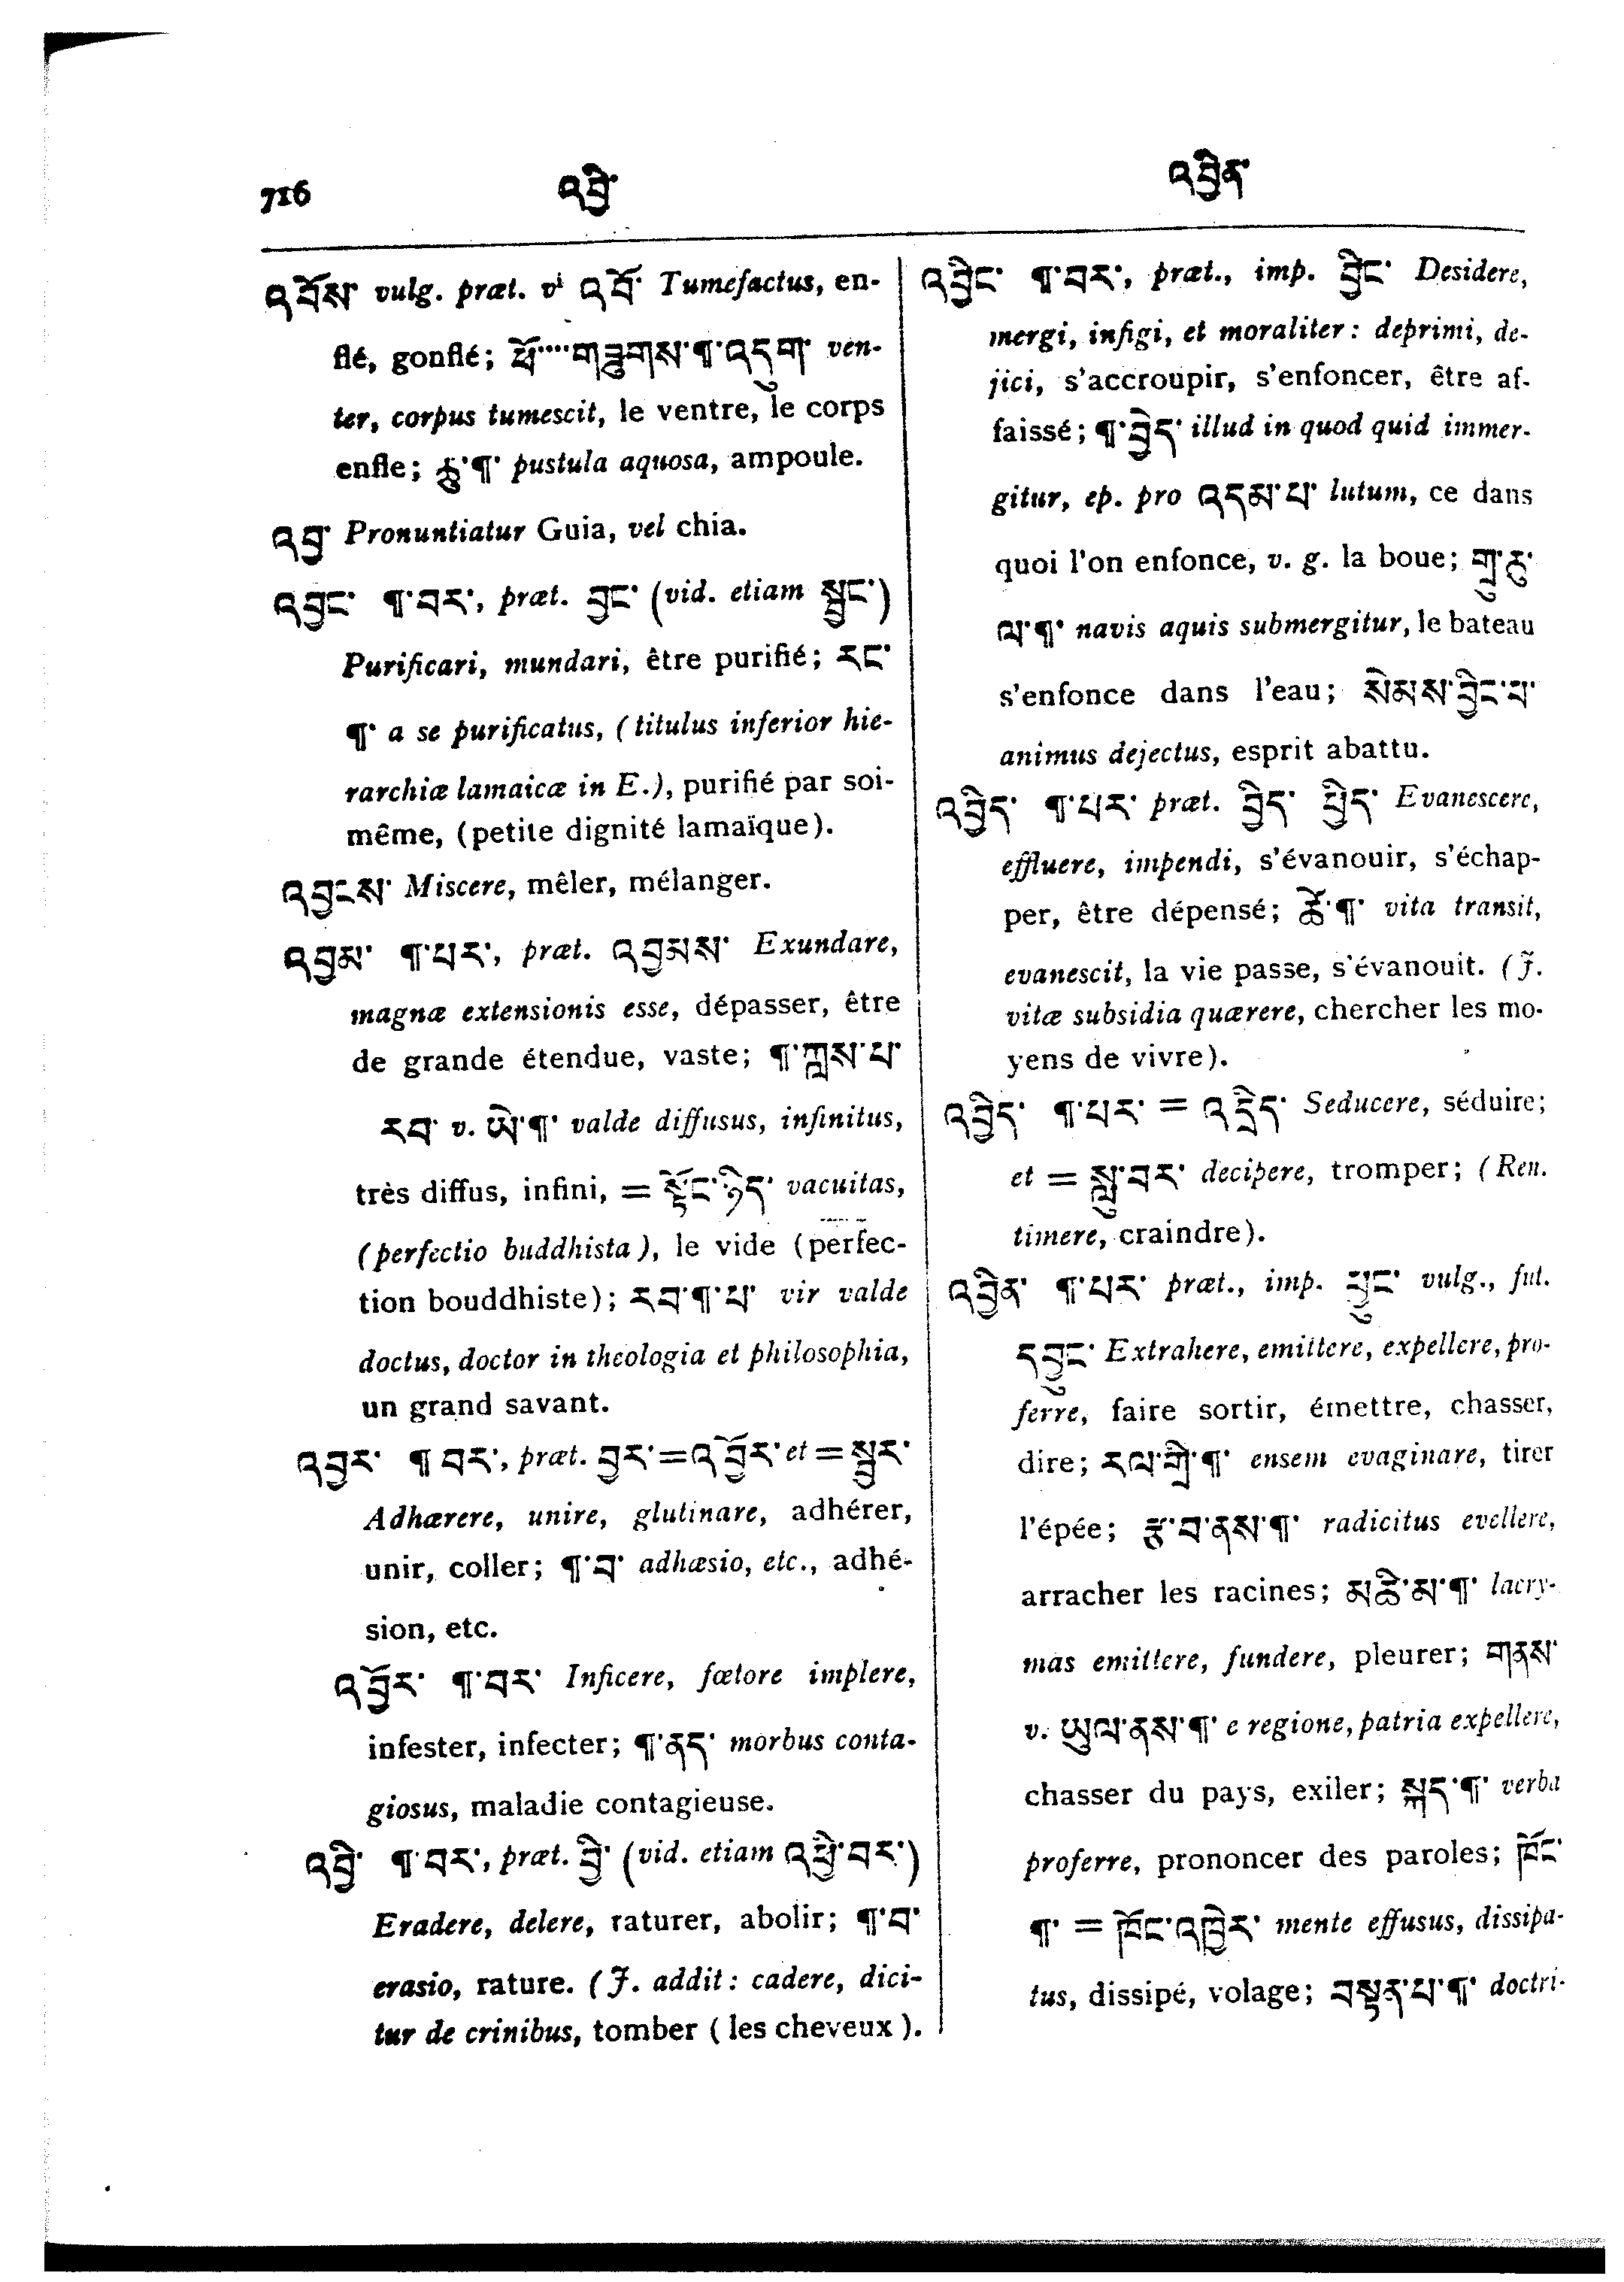 716
འབྱི་
འབྱིན་
འབོས་ vulg. præt. vi འབོ་ Tumefactus, en-
flé, gonflé; ཕོ་····གཟུགས་¶་འདུག་ ven-
ter, corpus tumescit, le ventre, le corps
enfle; ཆུ་¶་ pustula aquosa, ampoule.
འབྱ་ Pronuntiatur Guia, vel chia.
འབྱང་ ¶་བར་, præt. བྱང་ (vid. etiam སྦྱང་)
Purificari, mundari, être purifié; རང་
¶་ a se purificatus, (titulus inferior hie-
rarchiæ lamaicæ in E.), purifié par soi-
même, (petite dignité lamaïque).
འབྱངས་ Miscere, mêler, mélanger.
འབྱམ་ ¶་པར་, præt. འབྱམས་ Exundare,
magnæ extensionis esse, dépasser, être
de grande étendue, vaste; ¶་ཀླས་པ་
རབ་ v. ཡེ་¶་ valde diffusus, infinitus,
très diffus, infini, = སྟོང་ཉིད་ vacuitas,
(perfectio buddhista), le vide (perfec-
tion bouddhiste); རབ་¶་པ་ vir valde
doctus, doctor in theologia et philosophia,
un grand savant.
འབྱར་ ¶ བར་, præt. བྱར་=འབྱོར་ et = སྦྱར་
Adhærere, unire, glutinare, adhérer,
unir, coller; ¶་བ་ adhæsio, etc., adhé-
sion, etc.
འབྱོར་ ¶་བར་ Inficere, fœtore implere,
infester, infecter; ¶་ནད་ morbus conta-
giosus, maladie contagieuse.
འབྱི་ ¶་བར་, præt. བྱི་ (vid. etiam འཕྱི་བར་)
Eradere, delere, raturer, abolir; ¶་བ་
erasio, rature. (J. addit: cadere, dici-
tur de crinibus, tomber (les cheveux).
འབྱིང་ ¶་བར་, præt., imp. བྱིང་ Desidere,
mergi, infigi, et moraliter: deprimi, de-
jici, s'accroupir, s'enfoncer, être af-
faissé; ¶་བྱེད་ illud in quod quid immer-
gitur, ep. pro འདམ་པ་ lutum, ce dans
quoi l'on enfonce, v. g. la boue; གྲུ་རུ་
ལ་¶་ navis aquis submergitur, le bateau
s'enfonce dans l'eau; སེམས་བྱིང་པ་
animus dejectus, esprit abattu.
འབྱིད་ ¶་པར་ præt. བྱིད་ ཕྱིད་ Evanescere,
effluere, impendi, s'évanouir, s'échap-
per, être dépensé; ཚེ་¶་ vita transit,
evanescit, la vie passe, s'évanouit. (J.
vitæ subsidia quærere, chercher les mo-
yens de vivre).
འབྱིད་ ¶་པར་ = འདྲིད་ Seducere, séduire;
et = སླུ་བར་ decipere, tromper; (Ren.
timere, craindre).
འབྱིན་ ¶་པར་ præt., imp. ཕྱུང་ vulg., fut.
དབྱུང་ Extrahere, emittere, expellere, pro-
ferre, faire sortir, émettre, chasser,
dire; རལ་གྲི་¶་ ensem evaginare, tirer
l'épée; རྩ་བ་ནས་¶་ radicitus evellere,
arracher les racines; མཆི་མ་¶་ lacry-
mas emittere, fundere, pleurer; གནས་
v. ཡུལ་ནས་¶་ e regione, patria expellere,
chasser du pays, exiler; སྐད་¶་ verba
proferre, prononcer des paroles; ཁོང་
¶་ = ཁོང་འཁྱེར་ mente effusus, dissipa-
tus, dissipé, volage; བསྟན་པ་¶་ doctri-